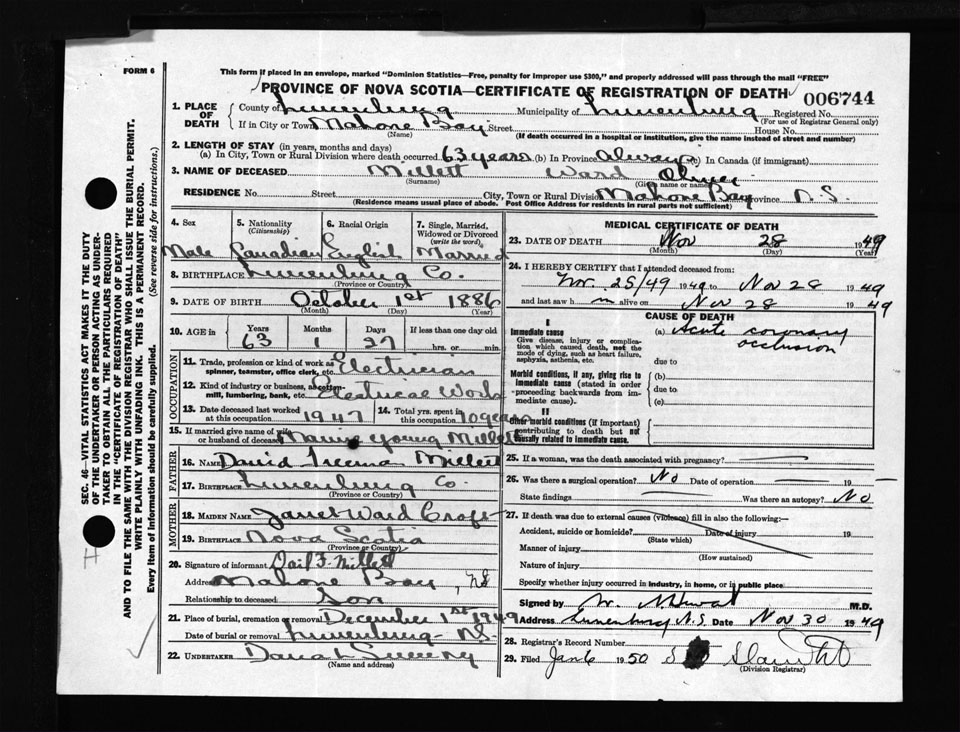 FORM 6
This form if placed in an envelope, marked "Dominion Statistics—Free, penalty for improper use $300," and properly addressed will pass through the mail "FREE"
PROVINCE OF NOVA SCOTIA—CERTIFICATE OF REGISTRATION OF DEATH
006744
1. PLACE OF DEATH
County of Lunenburg Municipality of Lunenburg Registered No.
(For use of Registrar General only)
If in City or Town Mahone Bay Street House No.
(Name) (If death occurred in a hospital or institution, give the name instead of street and number)
2. LENGTH OF STAY (in years, months and days)
(a) In City, Town or Rural Division where death occurred 63 years (b) In Province always (c) In Canada (if immigrant)
3. NAME OF DECEASED Millett Ward Oliver
(Surname) (Given name or names)
RESIDENCE No. Street City, Town or Rural Division Mahone Bay Province N.S.
(Residence means usual place of abode. Post Office Address for residents in rural parts not sufficient)
4. Sex
Male
5. Nationality
(Citizenship)
Canadian
6. Racial Origin
English
7. Single, Married, Widowed or Divorced
(write the word)
Married
8. BIRTHPLACE Lunenburg Co.
(Province or Country)
9. DATE OF BIRTH October 1st 1886
(Month) (Day) (Year)
10. AGE in
Years Months Days If less than one day old
63 1 27 hrs. or min.
OCCUPATION
11. Trade, profession or kind of work as spinner, teamster, office clerk, etc. Electrician
12. Kind of industry or business, as cotton-mill, lumbering, bank, etc. Electrical Work
13. Date deceased last worked at this occupation 1947
14. Total yrs. spent in this occupation 10 years
15. If married give name of wife or husband of deceased Young Millett
FATHER
16. NAME David Millett
17. BIRTHPLACE Lunenburg Co.
(Province or Country)
MOTHER
18. MAIDEN NAME Janet Ward Croft
19. BIRTHPLACE Nova Scotia
(Province or Country)
20. Signature of informant F. Millett
Address Mahone Bay, NS
Relationship to deceased Son
21. Place of burial, cremation or removal December 1st 1949
Date of burial or removal Lunenburg - N.S.
22. UNDERTAKER
(Name and address)
MEDICAL CERTIFICATE OF DEATH
23. DATE OF DEATH Nov 28 1949
(Month) (Day) (Year)
24. I HEREBY CERTIFY that I attended deceased from:
Nov. 25/49 1949 to Nov 28 1949
and last saw him alive on Nov 28 1949
CAUSE OF DEATH
I
Immediate cause
Give disease, injury or complication which caused death, not the mode of dying, such as heart failure, asphyxia, asthenia, etc.
(a) Acute coronary occlusion
due to
Morbid conditions, if any, giving rise to immediate cause (stated in order proceeding backwards from immediate cause).
(b)
due to
(c)
II
Other morbid conditions (if important) contributing to death but not causally related to immediate cause.
25. If a woman, was the death associated with pregnancy?
26. Was there a surgical operation? No Date of operation 19
State findings Was there an autopsy? No
27. If death was due to external causes (violence) fill in also the following:—
Accident, suicide or homicide? Date of injury 19
(State which)
Manner of injury
(How sustained)
Nature of injury
Specify whether injury occurred in industry, in home, or in public place
Signed by M.D.
Address Lunenburg N.S. Date Nov 30 1949
28. Registrar's Record Number
29. Filed Jan 6 1950
(Division Registrar)
SEC. 46—VITAL STATISTICS ACT MAKES IT THE DUTY
OF THE UNDERTAKER OR PERSON ACTING AS UNDER-
TAKER TO OBTAIN ALL THE PARTICULARS REQUIRED
IN THE "CERTIFICATE OF REGISTRATION OF DEATH"
AND TO FILE THE SAME WITH THE DIVISION REGISTRAR WHO SHALL ISSUE THE BURIAL PERMIT.
WRITE PLAINLY WITH UNFADING INK. THIS IS A PERMANENT RECORD.
Every item of information should be carefully supplied. (See reverse side for instructions.)
H